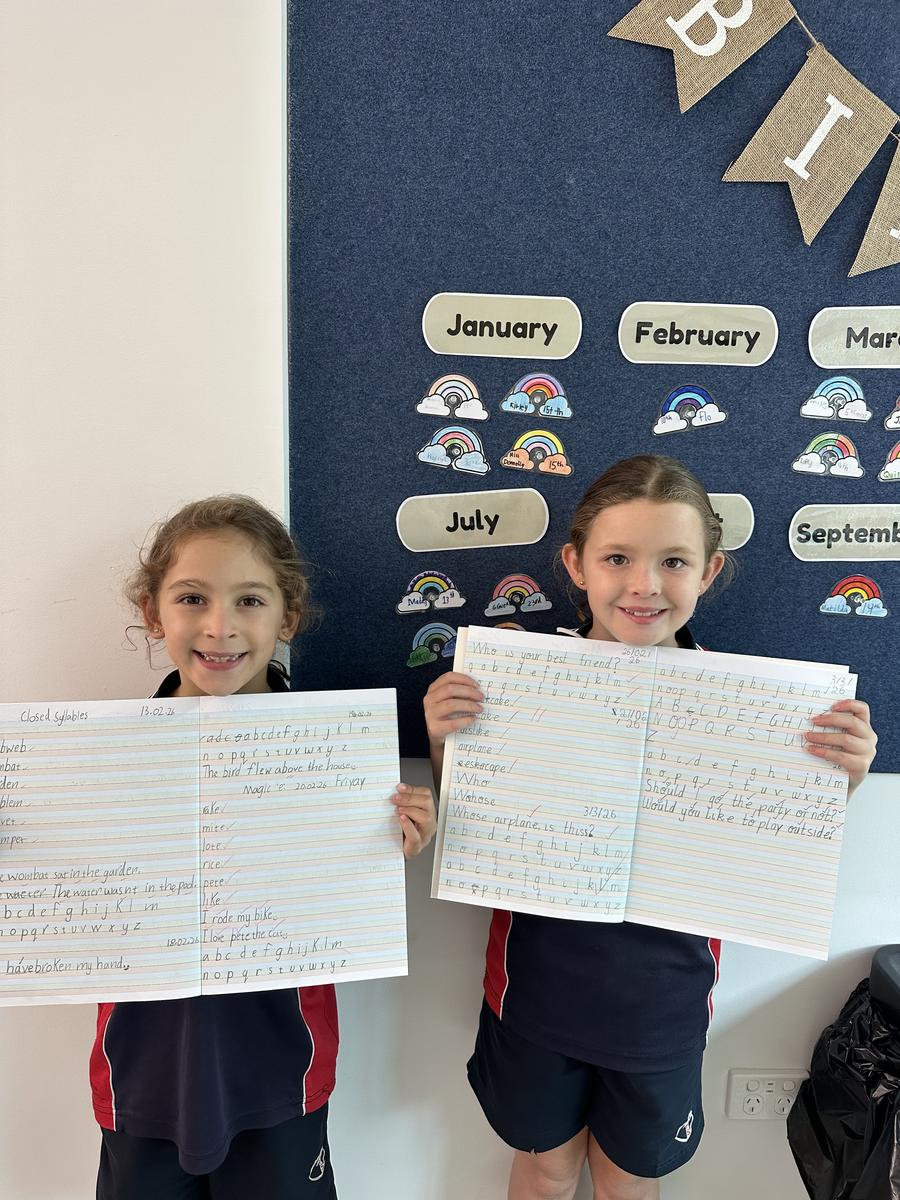 B
I
January
February
Mar
Kirley 15t-th
Flo
Donolly 15th
July
Septemb
17th
23rd
Matilda 14th
Closed syllables 13.02.26
bweb
mbat
den
blem
vet
mper
e wombat sat in the garden.
The water wasnt in the pod.
b c d e f g h i j k l m
n o p q r s t u v w x y z
18.02.26
have broken my hand
a b c d e f g h i j k l m
n o p q r s t u v w x y z
The bird flew above the house.
Magic 'e' 20.02.26 Friyay
mite
rice
pete
like
I rode my bike.
I love pete the cat
a b c d e f g h i j k l m
n o p q r s t u v w x y z
Who is your best friend? 26/02/26
a b c d e f g h i j k l m
n o p q r s t u v w x y z
cake
airplane
Who
Whose
3/3/26
Whose airplane is this?
a b c d e f g h i j k l m
n o p q r s t u v w x y z
a b c d e f g h i j k l m
n o p q r s t u v w x y z
3/3/26
a b c d e f g h i j k l m
n o p q r s t u v w x y z
A B C D E F G H I
N O P Q R S T U V
Z
a b c d e f g h i j k l m
n o p q r s t u v w x y z
Should I go the party or not?
Would you like to play outside?